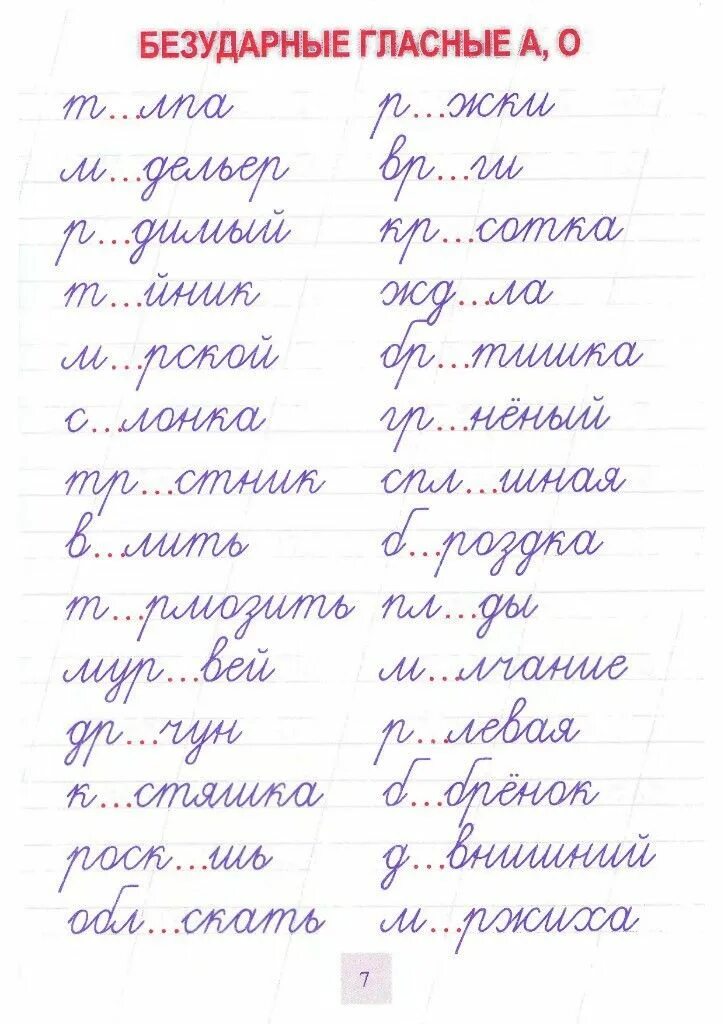 БЕЗУДАРНЫЕ ГЛАСНЫЕ А, О
т...лпа
м...дельер
р...димый
т...йник
м...рской
с...лонка
тр...стник
в...лить
т...рмозить
мур...вей
др...чун
к...стяшка
роск...шь
обл...скать
р...жки
вр...ги
кр...сотка
жд...ла
бр...тишка
гр...нёный
спл...шная
б...роздка
пл...ды
м...лчание
р...левая
б...брёнок
д...внишний
м...ржиха
7